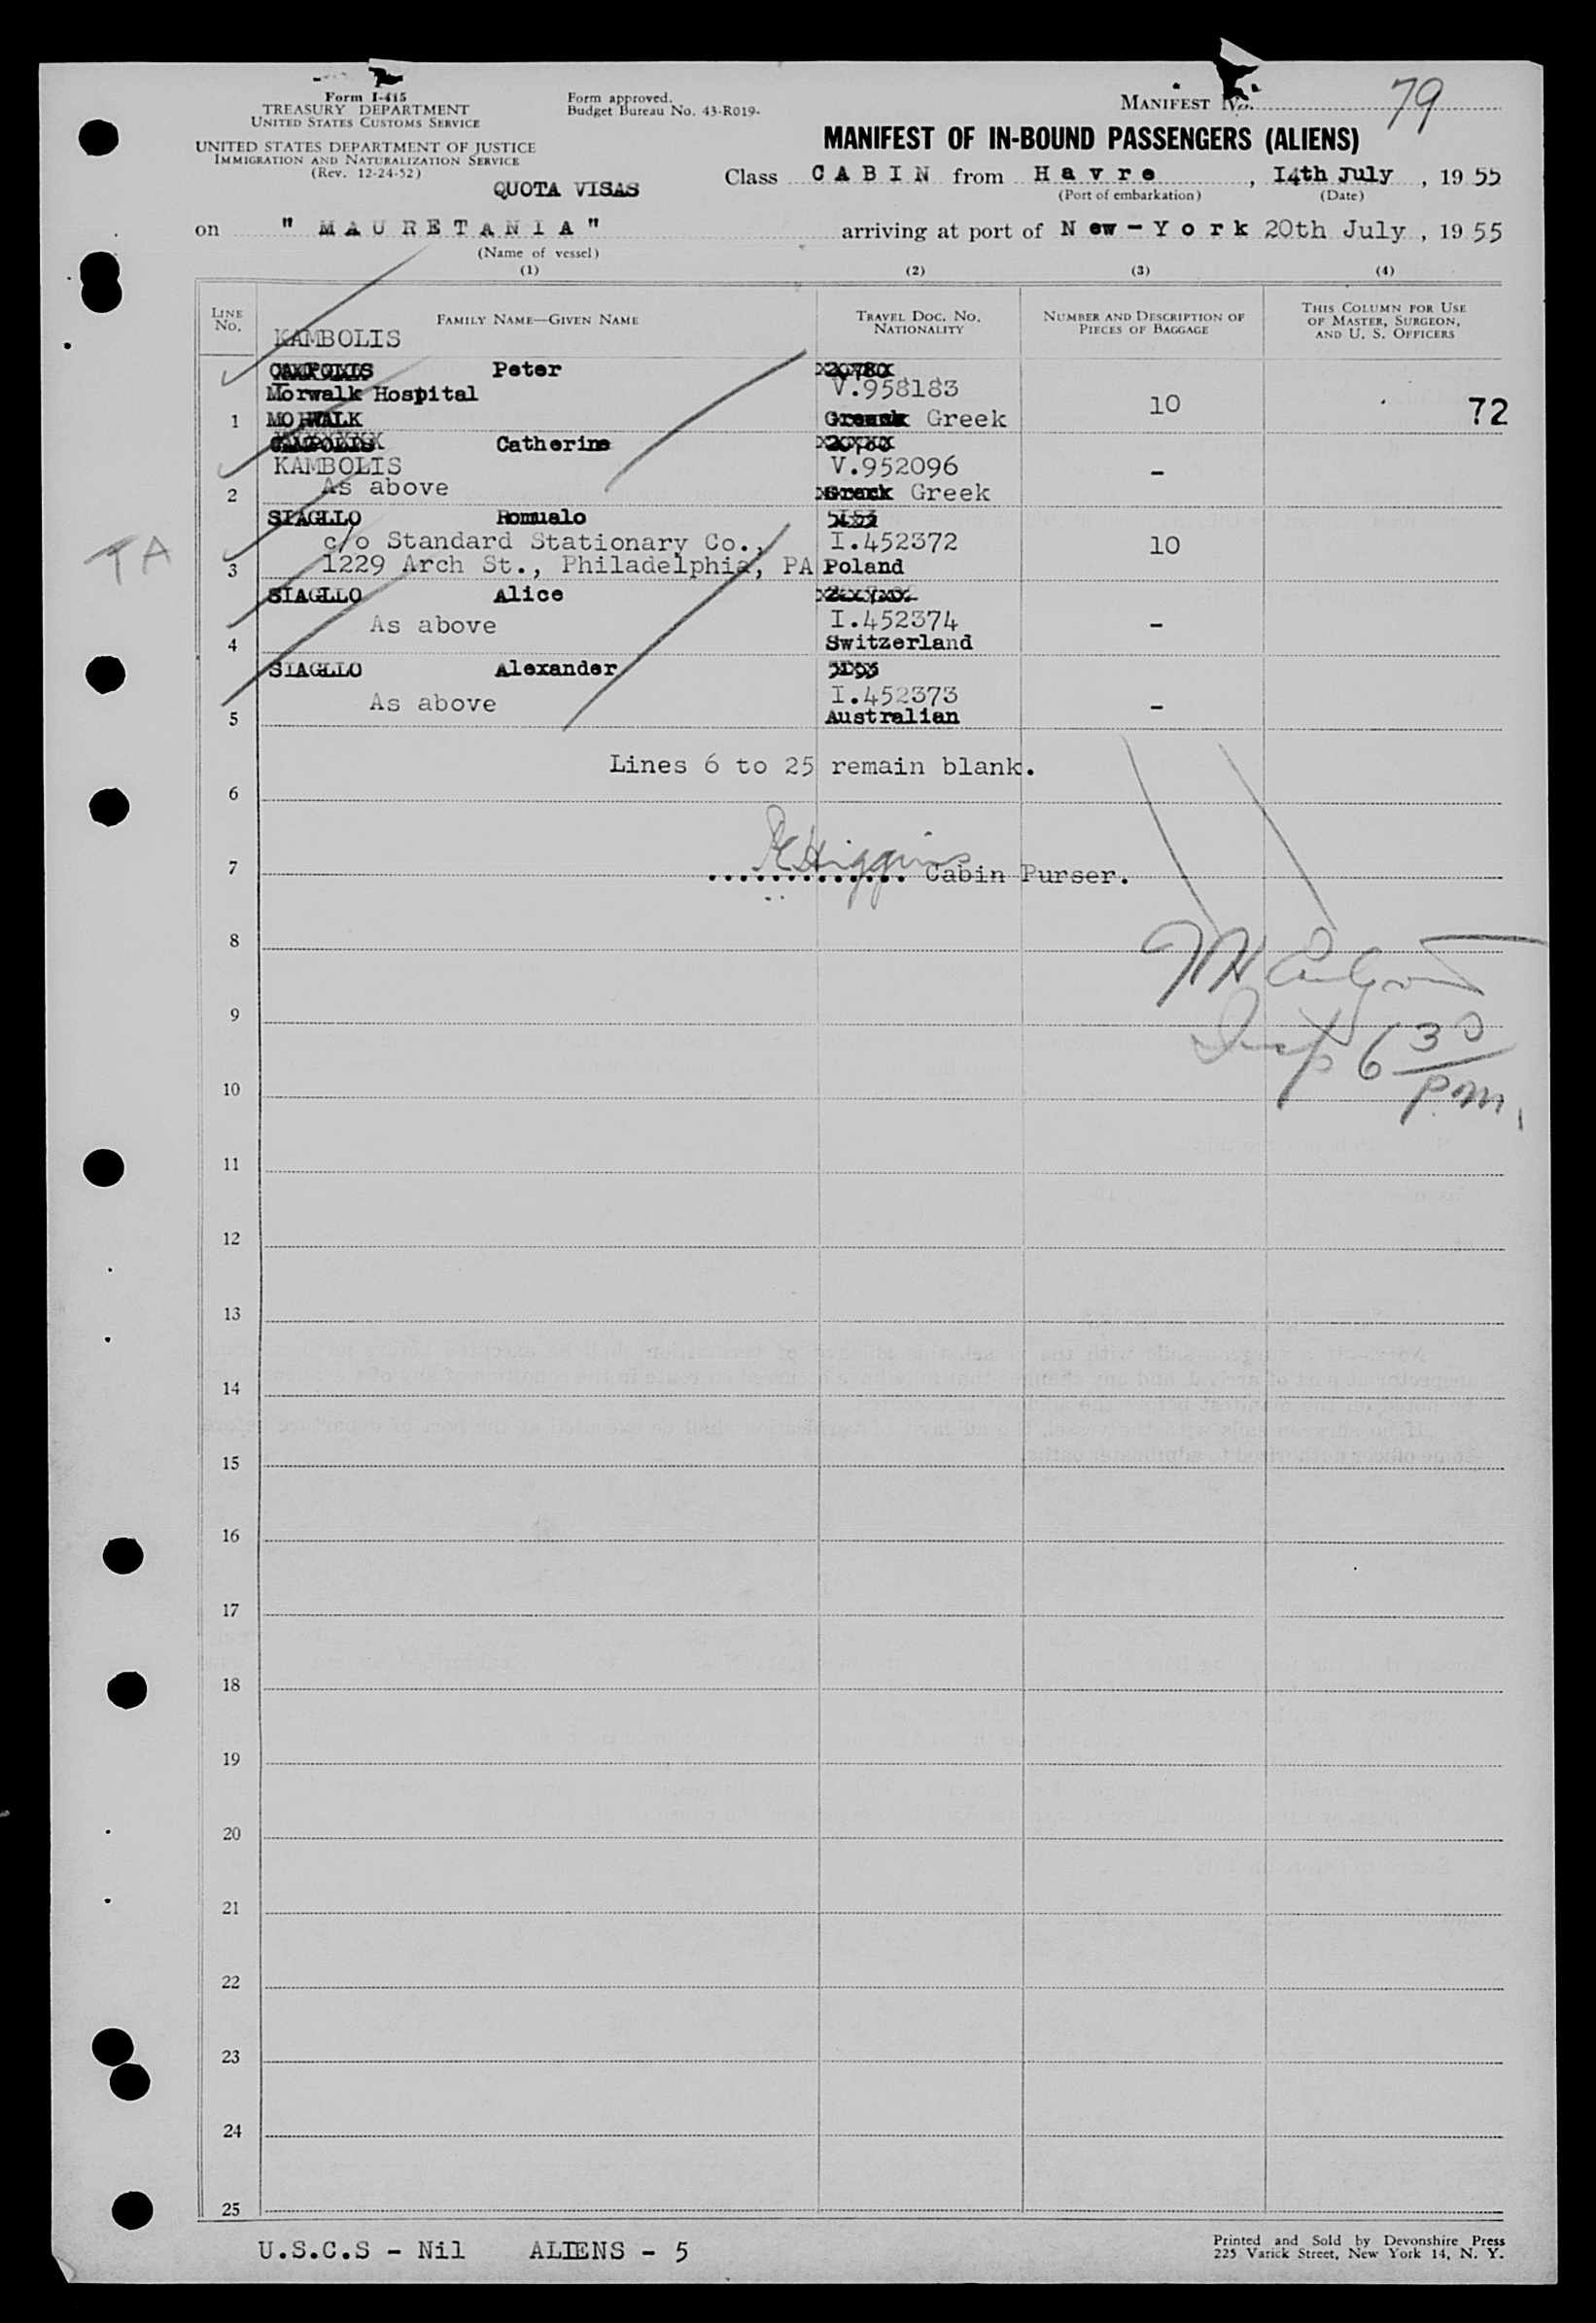 Form I-415
TREASURY DEPARTMENT
UNITED STATES CUSTOMS SERVICE
UNITED STATES DEPARTMENT OF JUSTICE
IMMIGRATION AND NATURALIZATION SERVICE
(Rev. 12-24-52)
Form approved.
Budget Bureau No. 43-R019-
MANIFEST No. 79
MANIFEST OF IN-BOUND PASSENGERS (ALIENS)
QUOTA VISAS
Class CABIN from Havre, 14th July, 19 55
(Port of embarkation) (Date)
on "MAURETANIA" arriving at port of New-York 20th July, 19 55
(Name of vessel)
(1) (2) (3) (4)
LINE No.
FAMILY NAME—GIVEN NAME
TRAVEL DOC. NO. NATIONALITY
NUMBER AND DESCRIPTION OF PIECES OF BAGGAGE
THIS COLUMN FOR USE OF MASTER, SURGEON, AND U. S. OFFICERS
KAMBOLIS
Peter
Morwalk Hospital V.958183
1 MORWALK Greek 10 72
Catherine
KAMBOLIS V.952096 -
2 As above Greek
SIAGLLO Romualo
c/o Standard Stationary Co., I.452372 10
3 1229 Arch St., Philadelphia, PA Poland
TA
SIAGLLO Alice
As above I.452374 -
4 Switzerland
SIAGLLO Alexander
As above I.452373 -
5 Australian
Lines 6 to 25 remain blank.
6
7 Higgins Cabin Purser.
8
9
6 30 pm
10
11
12
13
14
15
16
17
18
19
20
21
22
23
24
25
U.S.C.S - Nil ALIENS - 5
Printed and Sold by Devonshire Press
225 Varick Street, New York 14, N. Y.